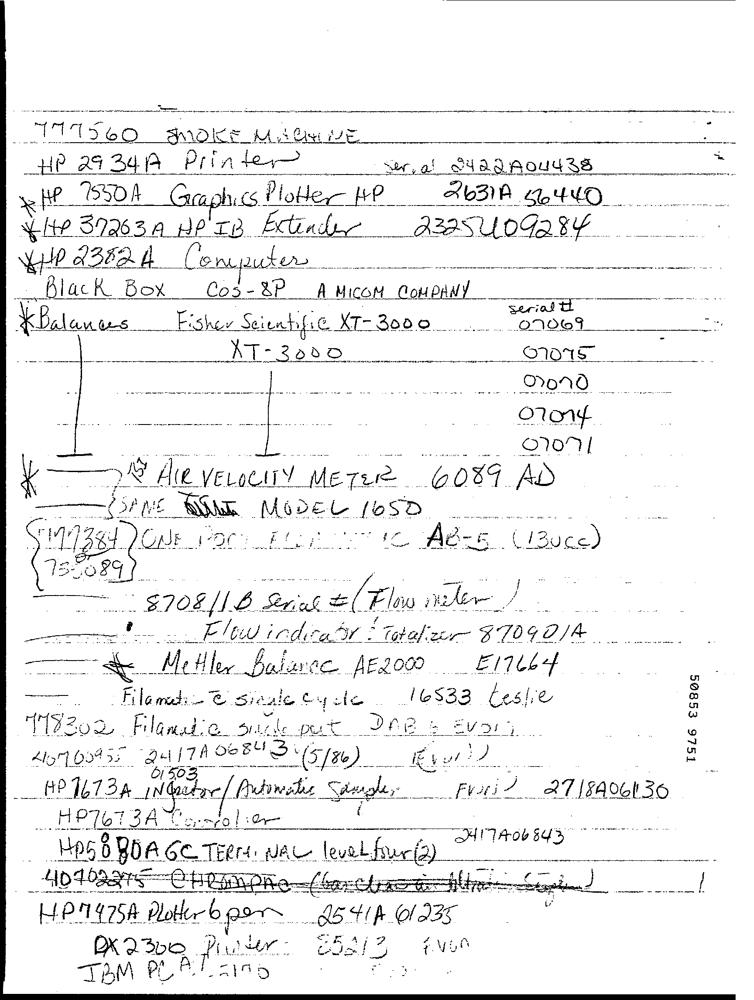 777560 SMOKE MACHINE
HP 2934A Printer serial 2422A04438
* HP 7550A Graphics Plotter HP 2631A 56440
* HP 37203A HP IB Extender 2325U09284
* HP 2382A Computer
Black Box COS-8P A MICOM COMPANY
serial #
* Balances Fisher Scientific XT-3000 07069
XT-3000 07075
07070
07074
07071
* AIR VELOCITY METER 6089 AD
SAME MODEL 1650
777384 ONE AB-5 (13occ)
8708/1B serial # (Flow meter)
Flow indicator : Totalizer 870901A
* Mettler Balance AE2000 E17664
Filamatic single cycle 16533 Leslie
778302 Filamatic
40700955 2417A06843 (5/86)
01503
HP7673A Injector/Automatic Sampler 2718A06130
HP7673A Controller
2417A06843
HP5880A GC TERMINAL level four (2)
40702275 CHROMPAC
HP7475A Plotter 6 pen 2541A 61235
DX2300 Printer 85213 Evon
IBM PC AT
50853 9751